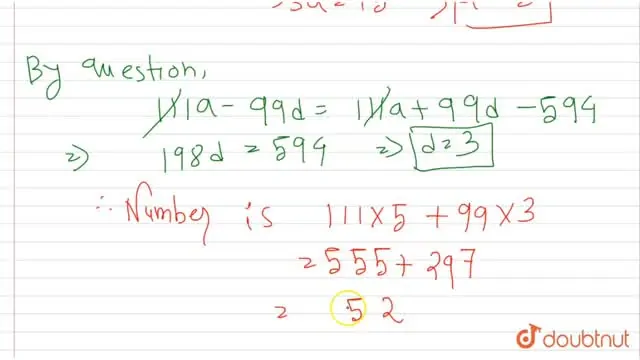 By question,
111a - 99d = 111a + 99d - 594
=> 198d = 594 => d = 3
∴ Number is 111×5 + 99×3
= 555 + 297
= 52
doubtnut